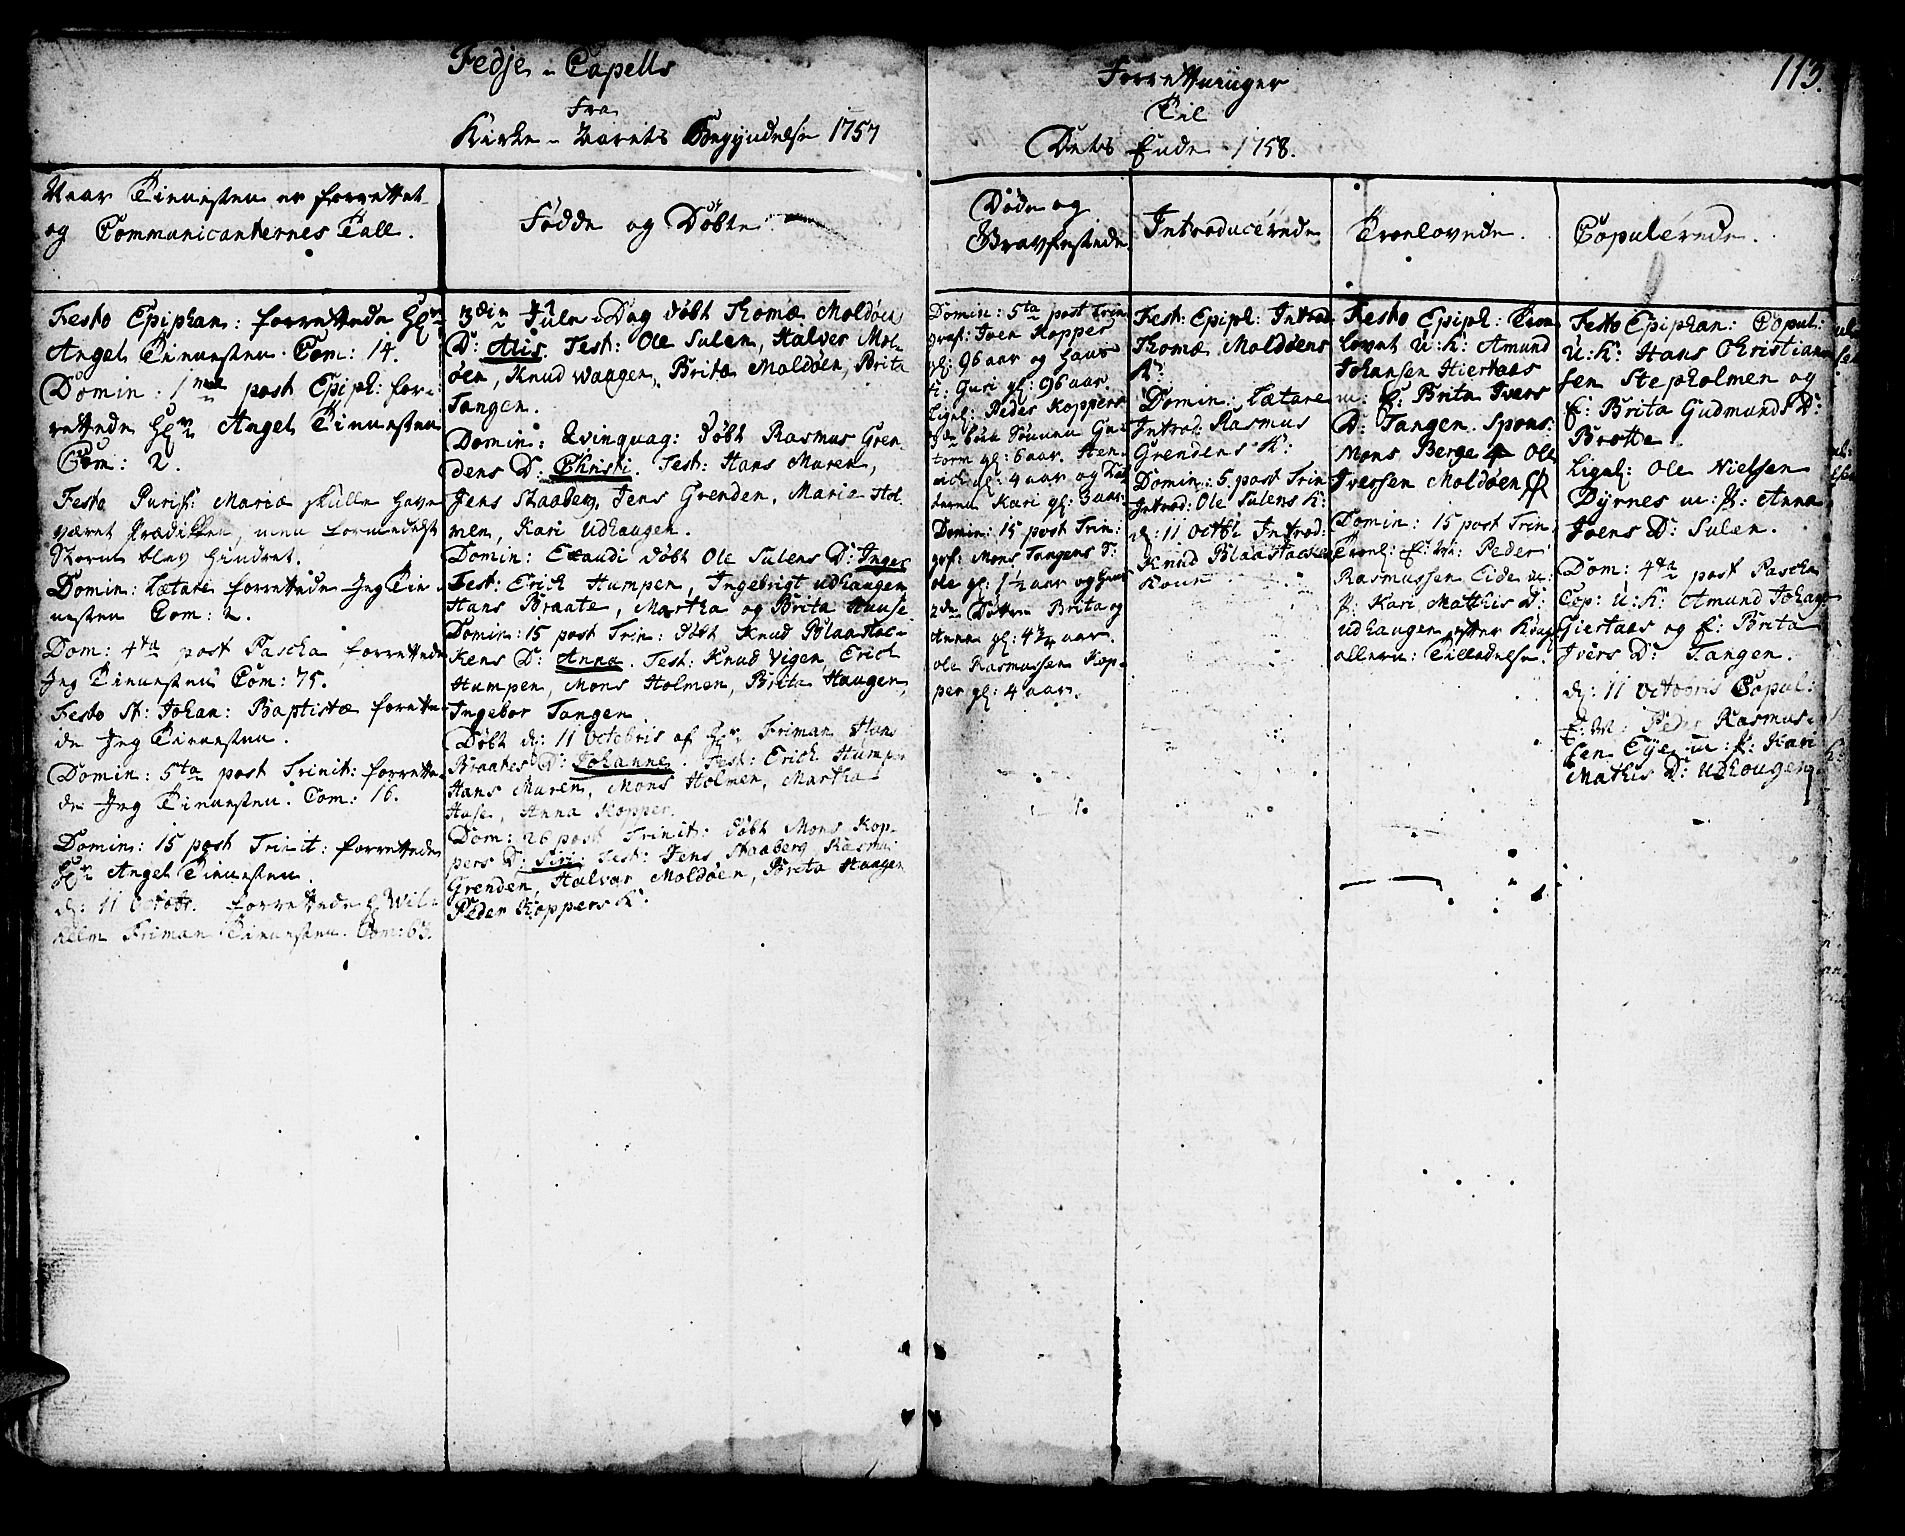 Fedje Capells
Fra
Kirke-Aarets Begyndelse 1757
Forrettninger
Til
Dets Ende 1758.
113.
Naar Tienesten er forrettet
og Communicanternes Tall.
Festo Epiphan: forrettede Hr
Angel Tienesten. Com: 14.
Domin: 1ma post Epiph: for-
rettede Hr Angel Tienesten
Com: 2.
Festo Purif: Mariæ skulle have
været Prædiken, men formedelst
Storm blev hindret.
Domin: Lætare forrettede Jeg Tie-
nesten Com: 2.
Dom: 4ta post Pascha forrettede
Jeg Tienesten Com: 75.
Festo St: Johan: Baptistæ forrette-
de Jeg Tienesten.
Domin: 5ta post Trinit: forrette-
de Jeg Tienesten. Com: 16.
Domin: 15 post Trinit: forrettede
Hr Angel Tienesten.
d: 11 Octobr. forrettede H Wil-
helm Friman Tienesten. Com: 63.
Fødde og Døbte
3die Jule-Dag døbt Thomæ Moldøen
D: Alis. Test: Ole Sulen, Halver Mol-
øen, Knud Waagen, Britæ Moldøen, Brita
Tangen.
Domin: Qvinquag: døbt Rasmus Gren-
dens D: Christi. Test: Hans Muren,
Jens Staaberg, Jens Grenden, Marie Hol-
men, Kari Udhaugen.
Domin: Exaudi døbt Ole Sulens D: Inger
Test: Erich Humpen, Ingebrigt Udhaugen
Hans Braate, Martha og Brita Huuse
Domin: 15 post Trin: døbt Knud Blaastac-
kens D: Anna. Test: Knud Vigen, Erich
Humpen, Mons Holmen, Brita Haugen,
Ingebor Tangen.
Døbt d: 11 Octobris af Hr Friman Hans
Braates D: Johanne. Test: Erich Humpen
Hans Muren, Mons Holmen, Martha
Huse, Anna Kopper.
Dom: 26 post Trinit: døbt Mons Kop-
pers D: Siri. Test: Jens Staaberg Rasmus
Grenden, Halvar Moldøen, Brita Haagen
Peder Koppers K:
Døde og
Gravfestede
Domin: 5ta post Trin
graf: Joen Kopper
gl: 96 aar og hans
K: Guri gl: 96 aar.
Ligel: Peder Koppers
Sønner Gut-
torm gl: 6 aar. Hen-
rich gl: 4 aar og
Kari gl: 3 aar.
Domin: 15 post Trin:
graf: Mons Tangens S:
Ole gl: 1½ aar og hans
2de Døttre Brita og
Anna gl: 4¾ aar.
Ole Rasmussen Kop-
per gl: 4 aar.
Introducerede
Fest: Epiph: Introd
Thomæ Moldøens
K:
Domin: Lætare
Introd: Rasmus
Grendens K:
Domin: 5 post Trin
Introd: Ole Sulens K:
d: 11 Octbr Introd:
Knud Blaastackens
Kone
Troelovede.
Festo Epiph: Troe-
lovet U: K: Amund
Johansen Hiertaas
m: P: Brita Ivers
D: Tangen. Spons:
Mons Berge Ole
Iverssen Moldøen
Domin: 15 post Trin:
Troel: E: M: Peder
Rasmussen Eide m:
P: Kari Mathis D:
Udhaugen efter
Tilladelse.
Copulerede.
Festo Epiphan: Copul:
U: K: Hans Christian-
sen Stepholmen og
P: Brita Gudmunds D:
Brotte.
Ligel: Ole Nielsen
Byrnes m: P: Anna
Joens D: Sulen.
Dom: 4ta post Pascha
Cop: U: K: Amund Johans
Giertaas og P: Brita
Ivers D: Tangen.
d: 11 Octobris Copul:
E: M: Peder Rasmus-
sen Eye m: P: Kari
Mathis D: Udhougen